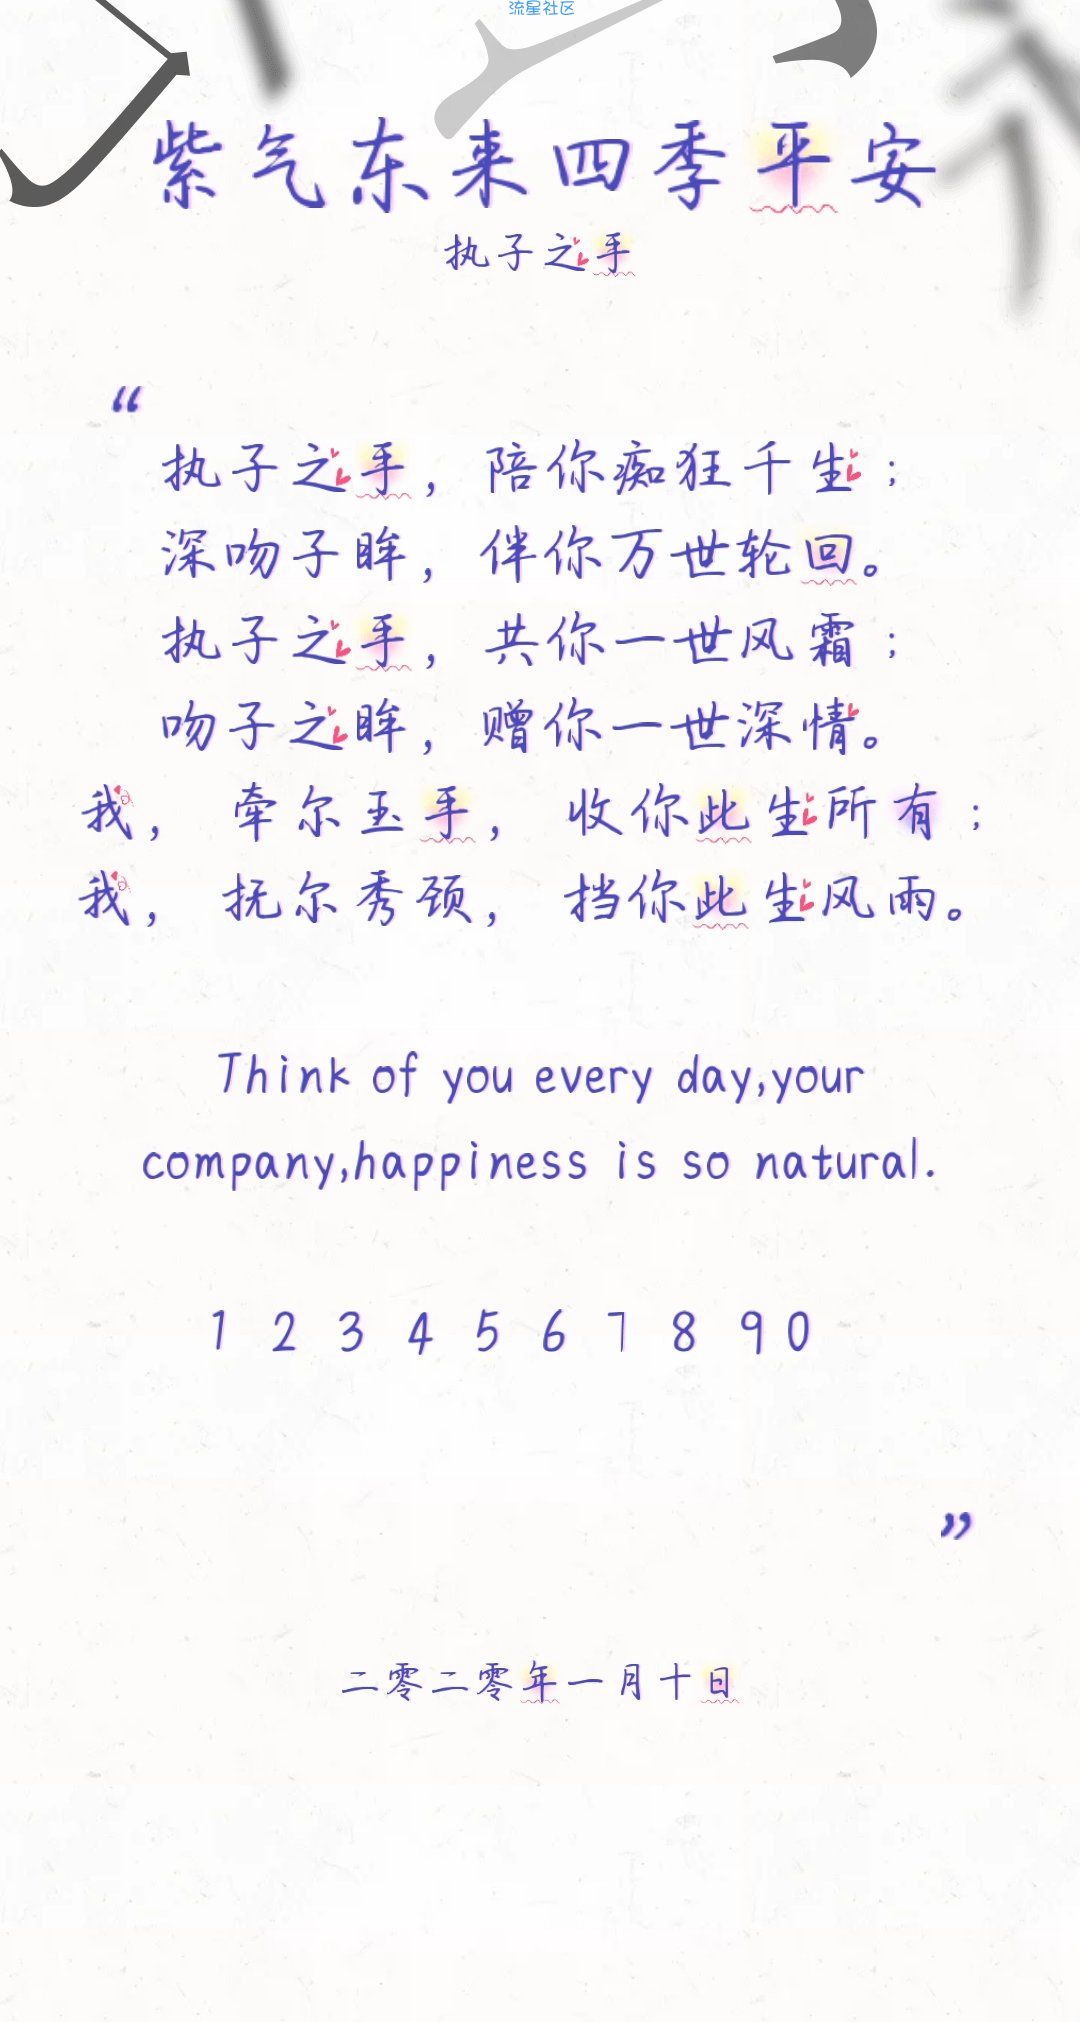 流星社区
紫气东来四季平安
执子之手
“
执子之手，陪你痴狂千生；
深吻子眸，伴你万世轮回。
执子之手，共你一世风霜；
吻子之眸，赠你一世深情。
我， 牵尔玉手， 收你此生所有；
我， 抚尔秀颈， 挡你此生风雨。
Think of you every day,your
company,happiness is so natural.
1 2 3 4 5 6 7 8 9 0
”
二零二零年一月十日